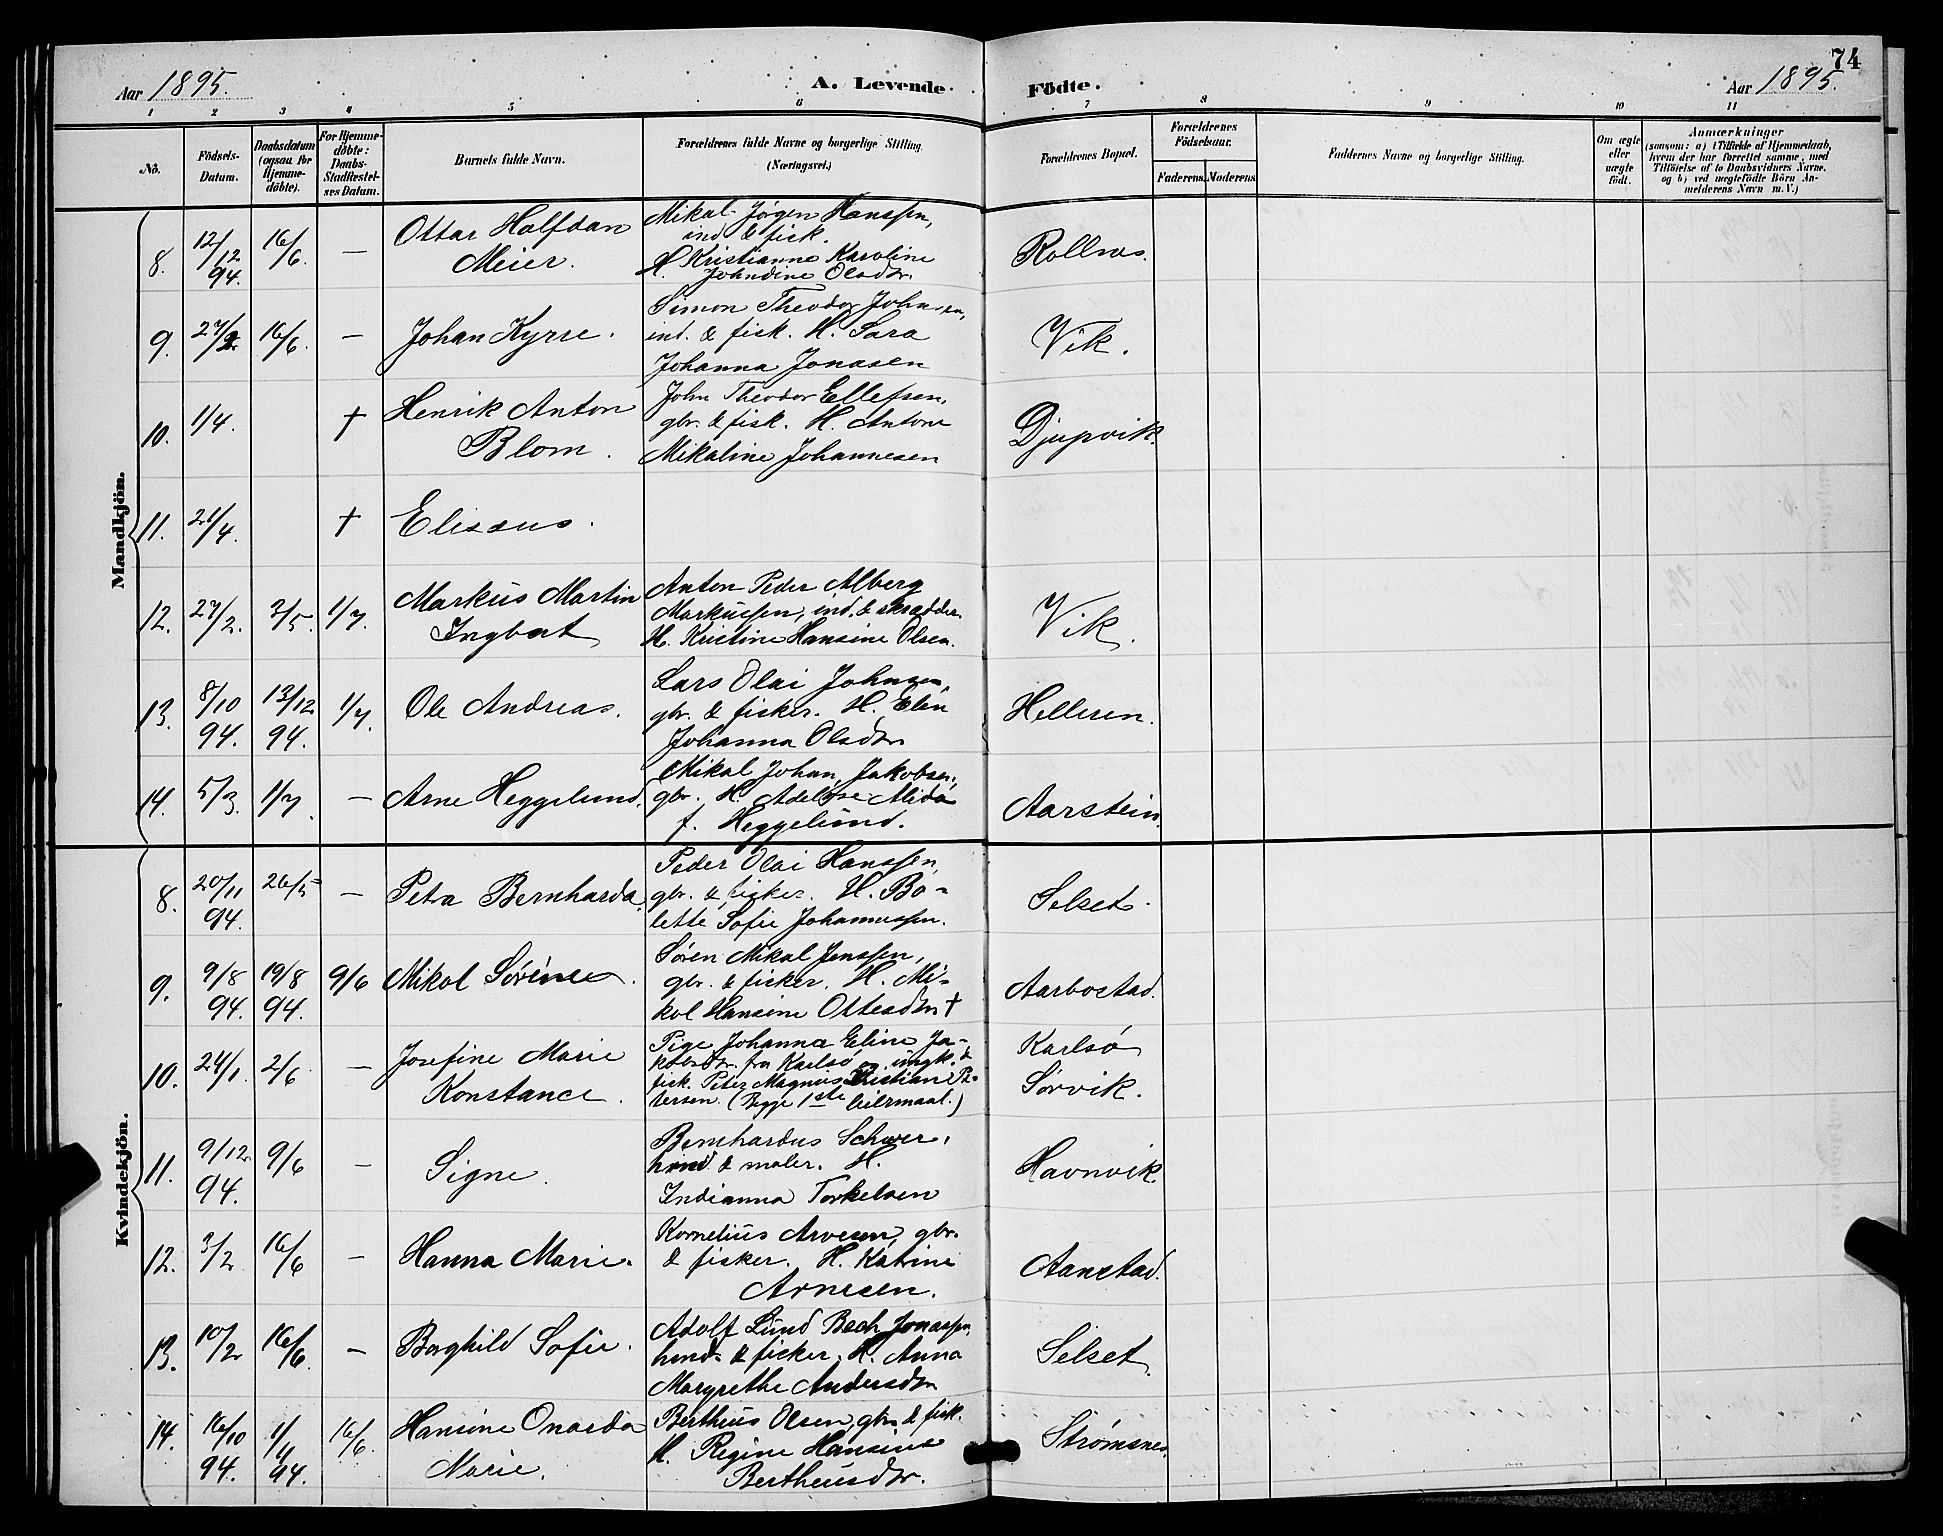 74
Aar 1895. A. Levende Födte. Aar 1895.
1 2 3 4 5 6 7 8 9 10 11
No. Födsels-Datum. Daabsdatum (ogsaa for Hjemme-döbte). For Hjemme-döbte: Daabs-Stadfæstel-ses Datum. Barnets fulde Navn. Forældrenes fulde Navne og borgerlige Stilling. (Næringsvei.) Forældrenes Bopæl. Forældrenes Födselsaar. Faderens. Moderens. Faddernes Navne og borgerlig Stilling. Om ægte eller uægte født.
Anmærkninger
(saasom: a) i Tilfælde af Hjemmedaab,
hvem der har forrettet samme, med
Tilföielse af to Daabsvidners Navne,
og b) ved uægtefödte Börn An-
melderens Navn m. V.)
Mandkjön.
8. 12/12 94. 16/6. — Ottar Halfdan Meier. Mikal Jørgen Hanssen,
ind. & fisk.
H. Kristianne Karoline
Johndine Olsdr. Rollnes.
9. 27/2. 16/6. — Johan Kyrre. Simon Theodor Johnsen,
ind. & fisk. H. Sara
Johanna Jonasen Vik.
10. 1/4. † Henrik Anton Blom. John Theodor Ellefsen,
gbr. & fisk. H. Antone
Mikaline Johannesen Djupvik.
11. 21/4. † Elisæus.
12. 27/2. 3/5. 1/7. Markus Martin Ingbert Anton Peder Alberg
Markussen, ind. & skrædder.
H. Kristine Hansine Olsen. Vik.
13. 8/10 94. 13/12 94. 1/7. Ole Andreas. Lars Olai Johnsen,
gbr. & fisker. H. Elen
Johanna Olsdr. Helleren.
14. 5/3. 1/7. — Arne Heggelund. Mikal Johan Jakobsen,
gbr. H. Adelose Alida
f. Heggelund. Aarstein.
Kvindekjön.
8. 20/11 94. 26/5 — Petra Bernharda. Peder Olai Hanssen,
gbr. & fisker. H. Bo-
lette Sofie Johannessen. Selset.
9. 9/8 94. 19/8 94. 9/6 Mikol Sørine. Søren Mikal Jenssen,
gbr. & fisker. H. Mi-
kol Hansine Ottesdtr † Aarbostad.
10. 24/1. 2/6. — Josefine Marie Konstance. Pige Johanna Eline Ja-
kobsdr. fra Karlsø og ungk. &
fisk. Peter Magnus Kristian Pe-
tersen. (Begge 1ste leiermaal.) Karlsø
Sørvik.
11. 9/12 94. 9/6 — Signe. Bernhardus Schwer,
hmd. & maler. H.
Indianna Torkelsen Havnvik.
12. 3/2. 16/6 — Hanna Marie. Kornelius Arnesen, gbr.
& fisker. H. Katrine
Arnesen. Aanstad.
13. 10/2 16/6. — Borghild Sofie. Adolf Lund Bech Jonassen,
hmd. & fisker. H. Anna
Margrethe Andersdtr Selset.
14. 16/10 94. 1/4 94. 16/6. Hansine Onarda Marie. Bertheus Olsen, gbr. & fisk.
H. Regine Hansine
Bertheusdtr. Strømsnes.